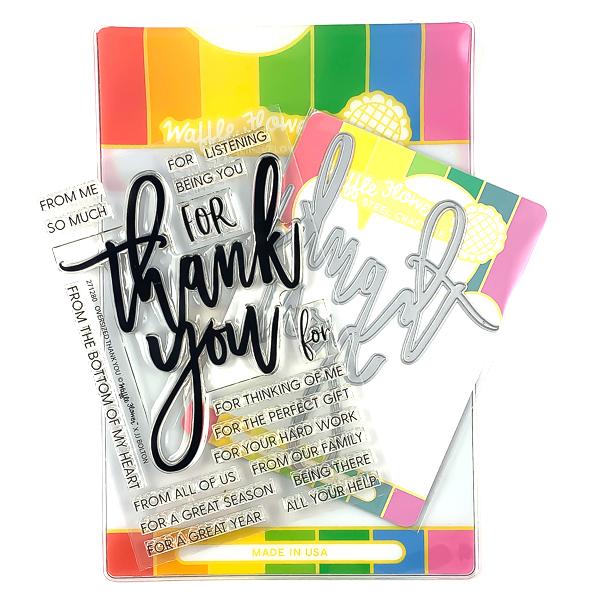 Waffle Flower
FOR LISTENING
BEING YOU
FROM ME,
SO MUCH
FOR
thank
you
for
271280 OVERSIZED THANK YOU © Waffle Flower X JJ BOLTON
FROM THE BOTTOM OF MY HEART
FOR THINKING OF ME
FOR THE PERFECT GIFT
FOR YOUR HARD WORK
FROM ALL OF US
FROM OUR FAMILY
FOR A GREAT SEASON
BEING THERE
FOR A GREAT YEAR
ALL YOUR HELP
Waffle Flower
STEEL
MADE IN USA